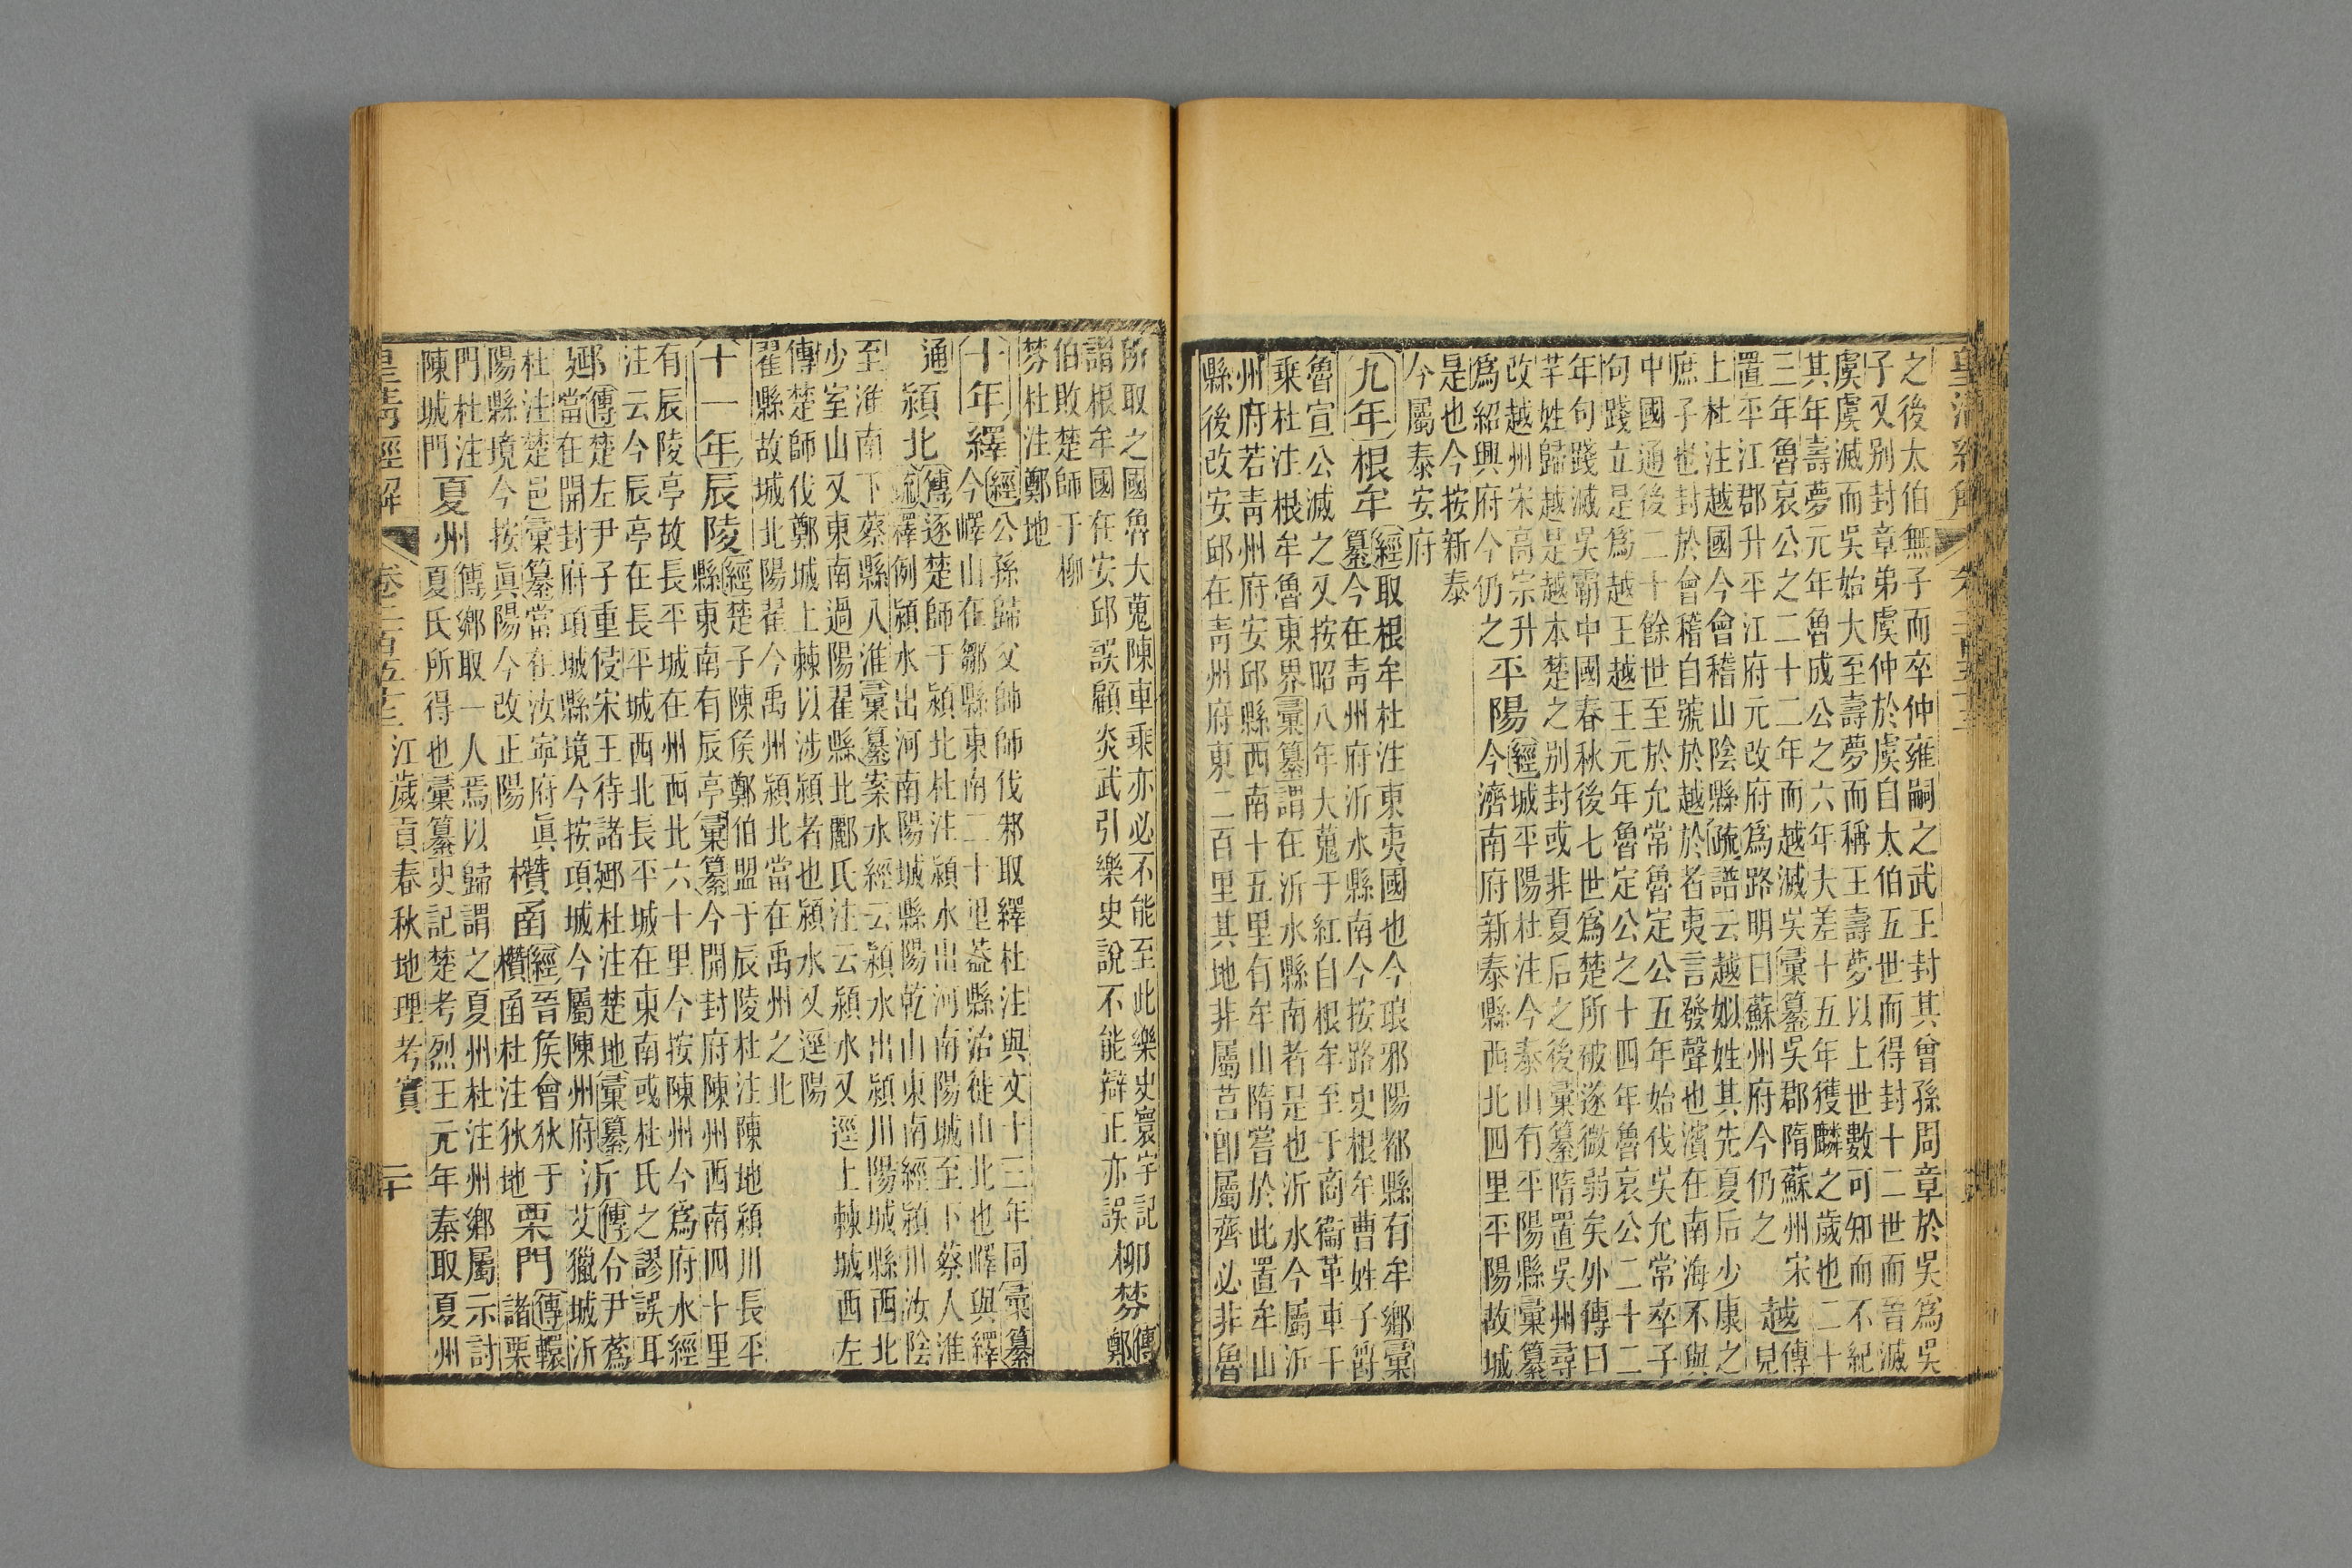 皇清經解
之後太伯無子而卒仲雍嗣之武王封其曾孫周章於吳爲吳
子又别封章弟虞仲於虞自太伯五世而得封十二世而晉滅
虞虞滅而吳始大至壽夢而稱王壽夢以上世數可知而不紀
其年壽夢元年魯成公之六年夫差十五年獲麟之歲也二十
三年魯哀公之二十二年而越滅吳彚纂吳郡隋蘇州宋
置平江郡升平江府元改府爲路明曰蘇州府今仍之
越傳見
上杜注越國今會稽山陰縣疏譜云越姒姓其先夏后少康之
庶子也封於會稽自號於越於者夷言發聲也濱在南海不與
中國通後二十餘世至於允常魯定公五年始伐吳允常卒子
句踐立是爲越王越王元年魯定公之十四年魯哀公二十二
年句踐滅吳霸中國春秋後七世爲楚所破遂微弱矣外傳曰
芊姓歸越是越本楚之别封或非夏后之後彚纂隋置吳州尋
改越州宋高宗升
爲紹興府今仍之
平陽
經城平陽杜注今泰山有平陽縣彚纂
今濟南府新泰縣西北四里平陽故城
是也今按新泰
今屬泰安府
九年
根牟
經取根牟杜注東夷國也今琅邪陽都縣有牟鄉彚
纂今在青州府沂水縣南今按路史根牟曹姓子爵
魯宣公滅之又按昭八年大蒐于紅自根牟至于商衞革車千
乗杜注根牟魯東界彚纂謂在沂水縣南者是也沂水今屬沂
州府若青州府安邱縣西南十五里有牟山隋嘗於此置牟山
縣後改安邱在青州府東二百里其地非屬莒卽屬齊必非魯
所取之國魯大蒐陳車乗亦必不能至此樂史寰宇記
謂根牟國在安邱誤顧炎武引樂史說不能辯正亦誤
柳棼
傳鄭
伯敗楚師于柳
棼杜注鄭地
十年
繹
經公孫歸父帥師伐邾取繹杜注與文十三年同彚纂
今嶧山在鄒縣東南二十里葢縣治徙山北也嶧與繹
通
潁北
傳逐楚師于潁北杜注潁水出河南陽城至下蔡人淮
疏釋例潁水出河南陽城縣陽乾山東南經潁川汝陰
至淮南下蔡縣入淮彚纂案水經云潁水出潁川陽城縣西北
少室山又東南過陽翟縣北酈氏注云潁水又逕上棘城西左
傳楚師伐鄭城上棘以涉潁者也潁水又逕陽
翟縣故城北陽翟今禹州潁北當在禹州之北
十一年
辰陵
經楚子陳侯鄭伯盟于辰陵杜注陳地潁川長平
縣東南有辰亭彚纂今開封府陳州西南四十里
有辰陵亭故長平城在州西北六十里今按陳州今爲府水經
注云今辰亭在長平城西北長平城在東南或杜氏之謬誤耳
郔
傳楚左尹子重侵宋王待諸郔杜注楚地彚纂
郔當在開封府項城縣境今按項城今屬陳州府
沂
傳令尹蒍
艾獵城沂
杜注楚邑彚纂當在汝寧府眞
陽縣境今按眞陽今改正陽
欑函
經晉侯會狄于
欑函杜注狄地
栗門
傳轘
諸栗
門杜注
陳城門
夏州
傳鄉取一人焉以歸謂之夏州杜注州鄉屬示討
夏氏所得也彚纂史記楚考烈王元年秦取夏州
皇清經解
卷二百五十三
江歲貢春秋地理考實
二十